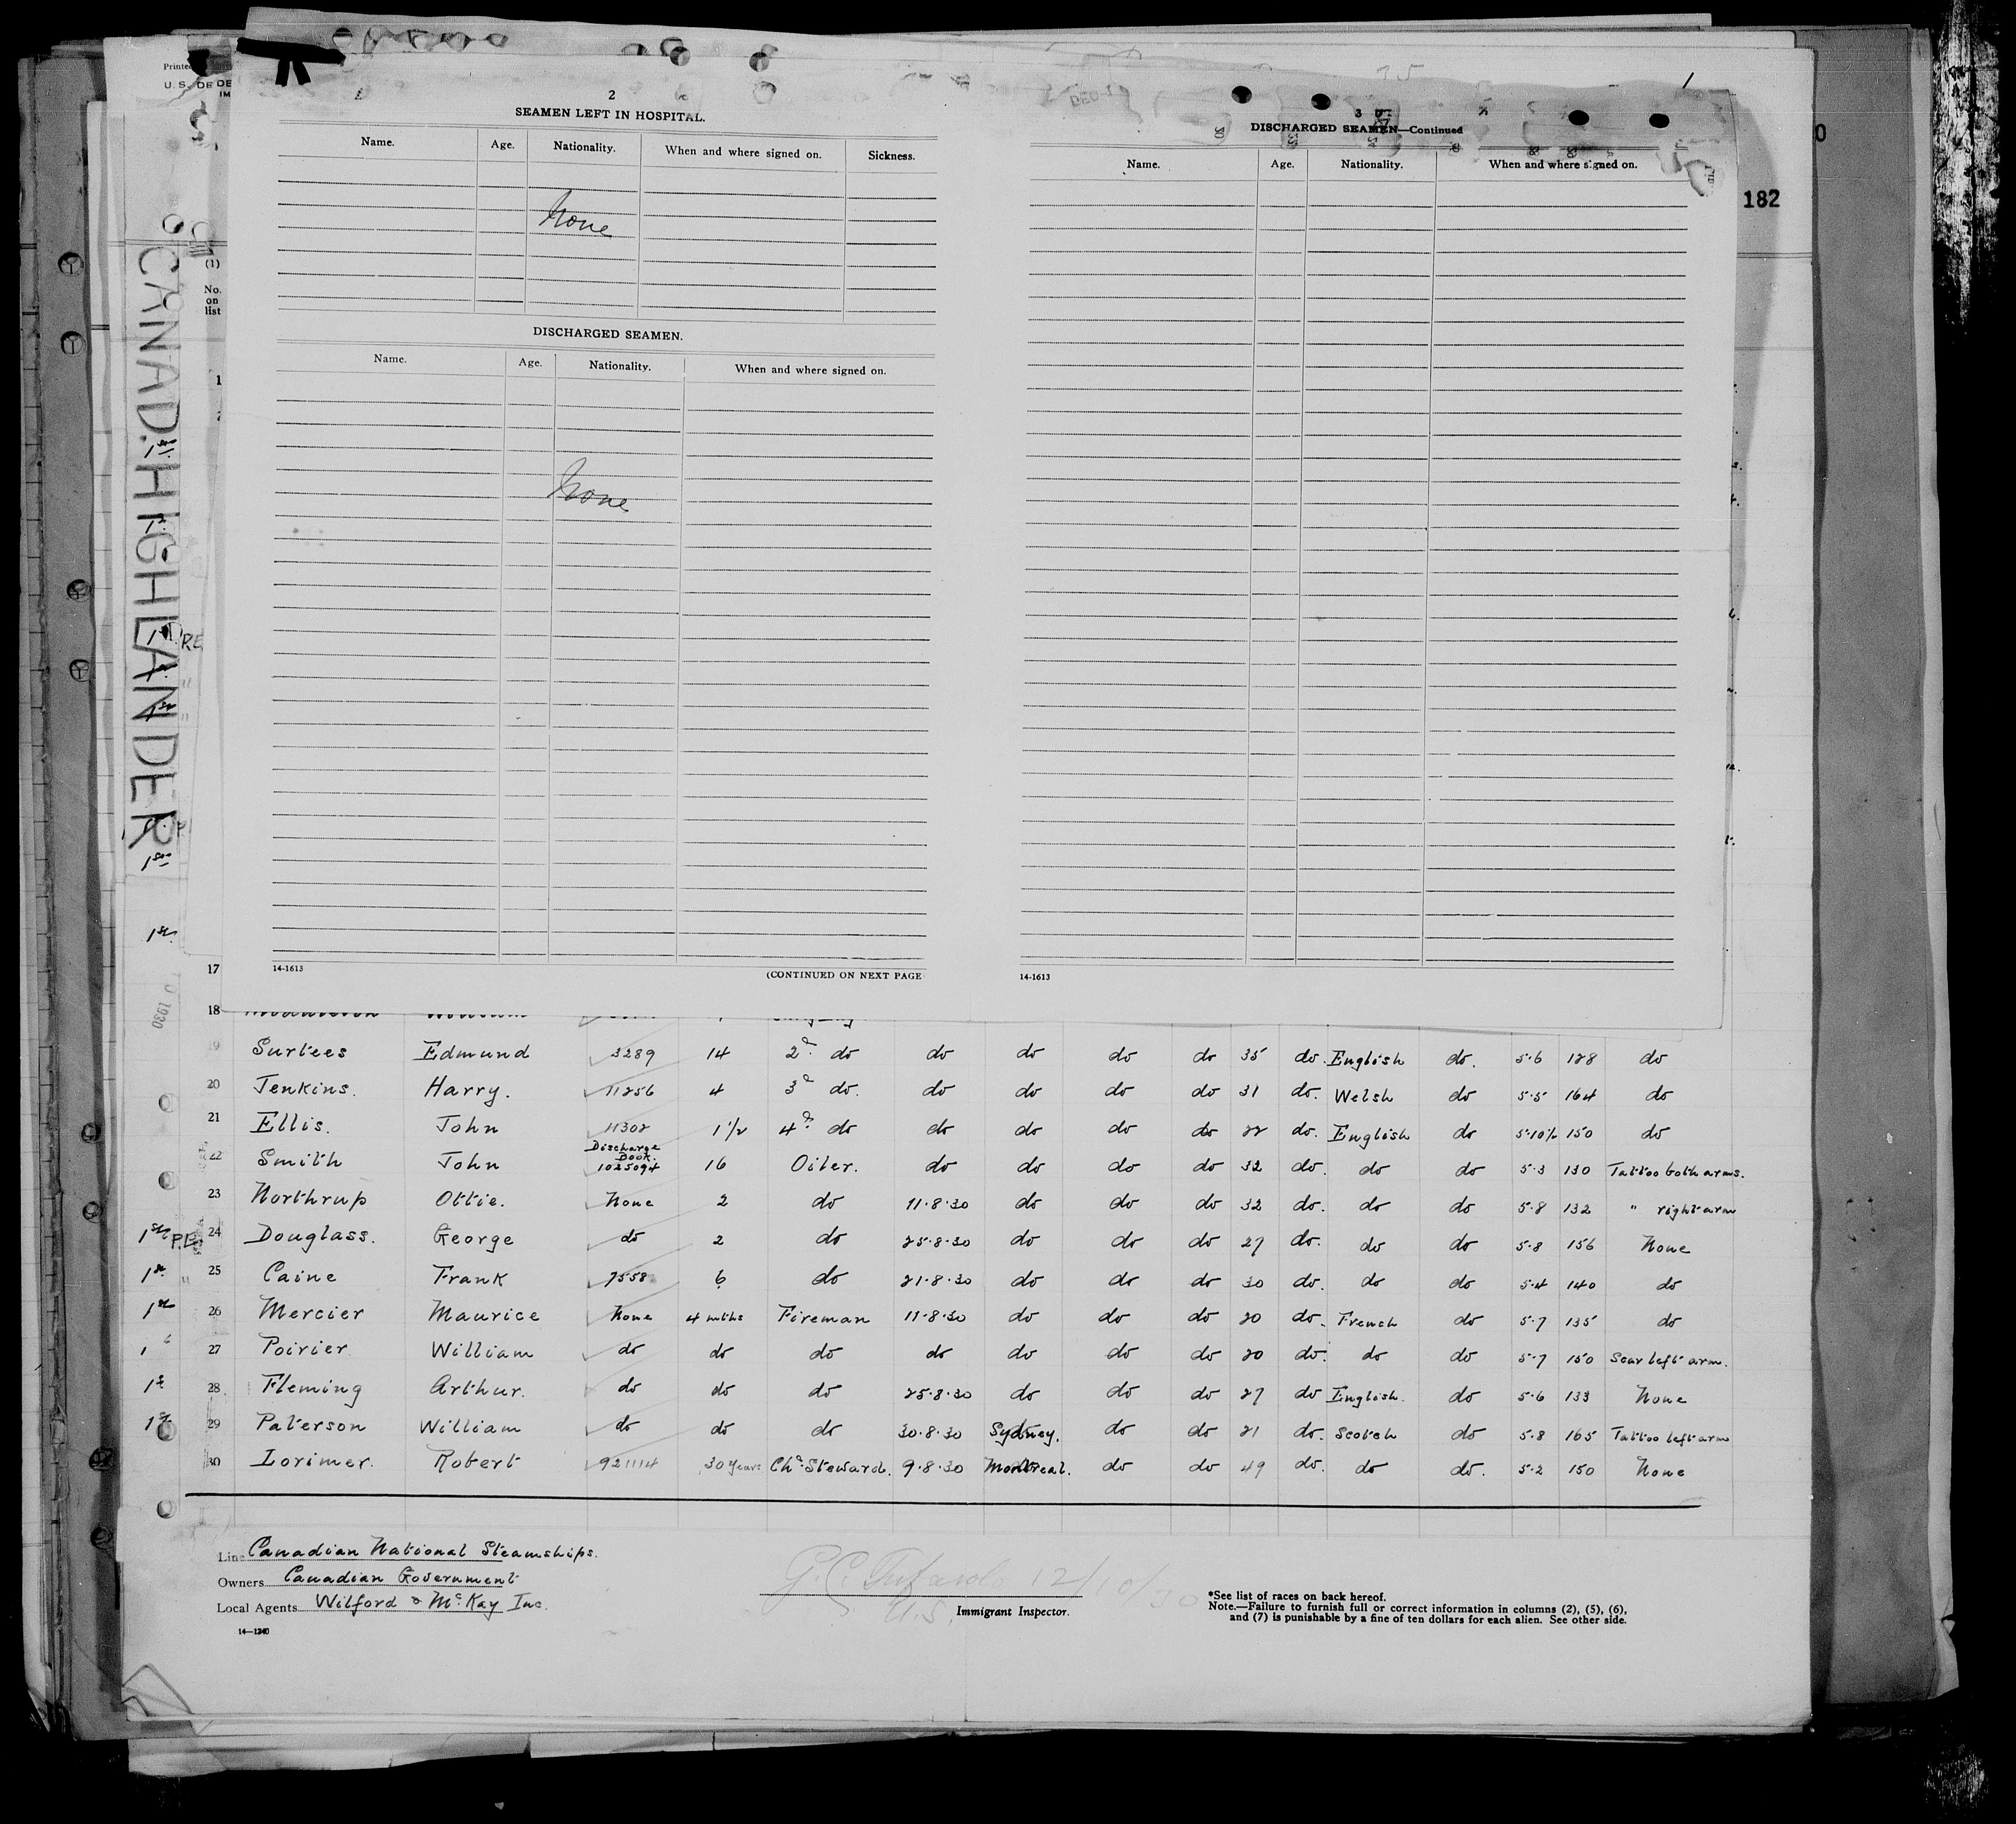 182
CANAD. HIGHLANDER
2
SEAMEN LEFT IN HOSPITAL.
Name. Age. Nationality. When and where signed on. Sickness.
None
DISCHARGED SEAMEN.
Name. Age. Nationality. When and where signed on.
None
14-1613 (CONTINUED ON NEXT PAGE
3
DISCHARGED SEAMEN—Continued
Name. Age. Nationality. When and where signed on.
14-1613
(1)
No. on list
17
18
Surtees Edmund 3289 14 2d. do do do do do 35 do. English do. 5.6 128 do
20 Jenkins. Harry. 11256 4 3d do. do do do do 31 do. Welsh do 5.5 164 do
21 Ellis. John 11302 1 1/2 4th do do do do do 22 do. English do 5.10½ 150 do
22 Smith John Discharge Book. 1025094 16 Oiler. do do do do 32 do. do do 5.3 130 Tattoo both arms.
23 Northrup Ottie. None 2 do 11.8.30 do do do 32 do. do do 5.8 132 " right arm
1st P.E. 24 Douglass. George do 2 do 25.8.30 do do do 27 do. do do 5.8 156 None
1st 25 Caine Frank 7558 6 do 21.8.30 do do do 30 do. do do 5.4 140 do
1st 26 Mercier Maurice None 4 mths Fireman 11.8.30 do do do 20 do. French do 5.7 135 do
27 Poirier William do do do do do do do 20 do. do do 5.7 150 Scar left arm.
28 Fleming Arthur. do do do 25.8.30 do do do 27 do English. do 5.6 133 None
29 Paterson William do do do 30.8.30 Sydney. do do 21 do. Scotch do 5.8 165 Tattoo left arm
30 Lorimer. Robert 921114 30 Years Ch. Steward. 9.8.30 Montreal. do do 49 do. do do. 5.2 150 None
Line Canadian National Steamships.
Owners Canadian Government
Local Agents Wilford & McKay Inc.
14—1240
12/10/30
Immigrant Inspector.
*See list of races on back hereof.
Note.—Failure to furnish full or correct information in columns (2), (5), (6),
and (7) is punishable by a fine of ten dollars for each alien. See other side.